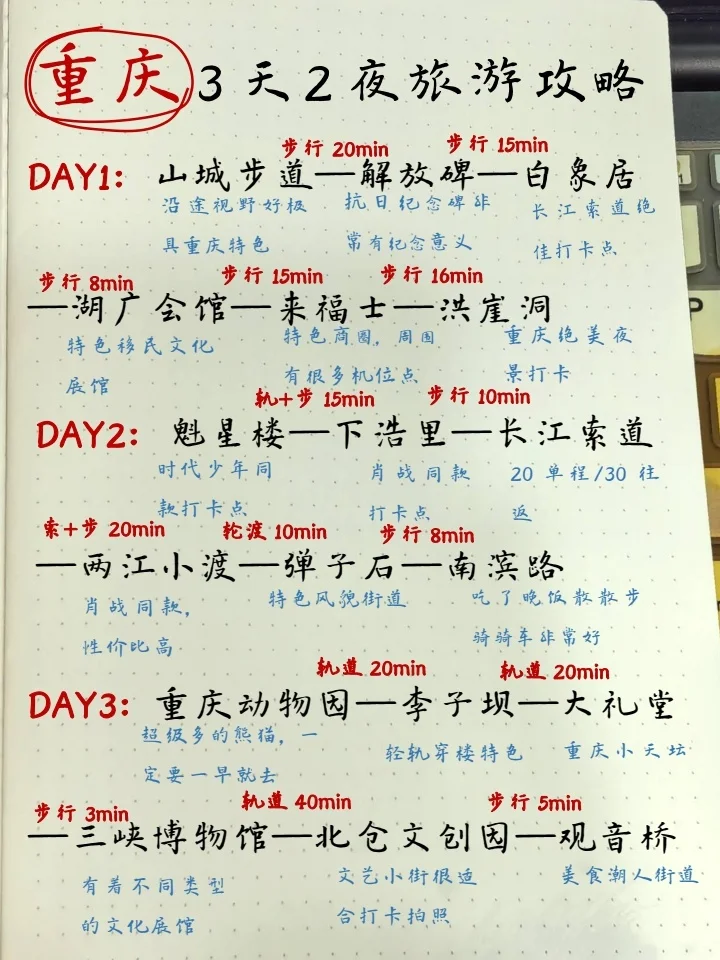 重庆3天2夜旅游攻略
步行 20min 步行 15min
DAY1: 山城步道—解放碑—白象居
沿途视野好极 抗日纪念碑非 长江索道绝
具重庆特色 常有纪念意义 佳打卡点
步行 8min 步行 15min 步行 16min
—湖广会馆—来福士—洪崖洞
特色移民文化 特色商圈，周围 重庆绝美夜
展馆 有很多机位点 景打卡
轨+步 15min 步行 10min
DAY2: 魁星楼—下浩里—长江索道
时代少年同 肖战同款 20 单程/30 往
款打卡点 打卡点 返
索+步 20min 轮渡 10min 步行 8min
—两江小渡—弹子石—南滨路
肖战同款， 特色风貌街道 吃了晚饭散散步
性价比高 骑骑车非常好
轨道 20min 轨道 20min
DAY3: 重庆动物园—李子坝—大礼堂
超级多的熊猫，一 轻轨穿楼特色 重庆小天坛
定要一早就去
步行 3min 轨道 40min 步行 5min
—三峡博物馆—北仓文创园—观音桥
有着不同类型 文艺小街很适 美食潮人街道
的文化展馆 合打卡拍照
P